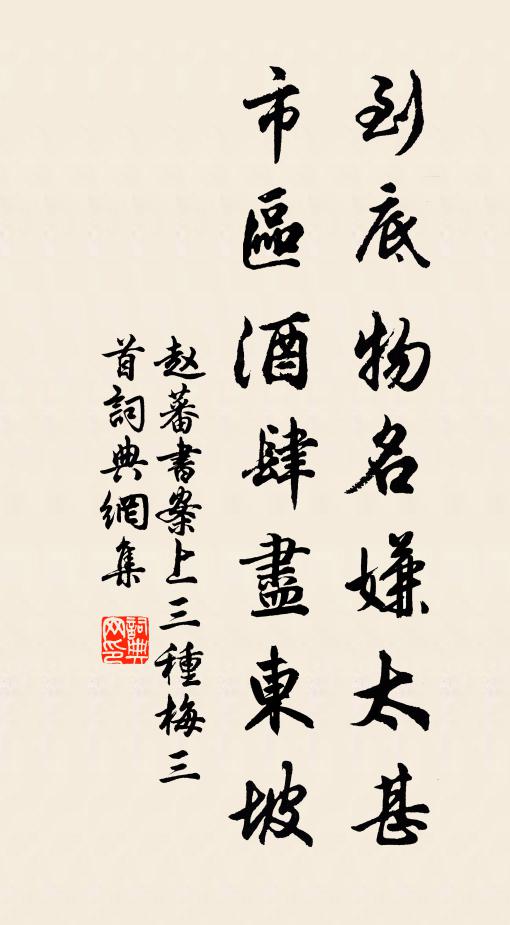 到底物名嫌太甚
市區酒肆盡東坡
赵蕃書案上三種梅三
首詞典網集
詞典网印